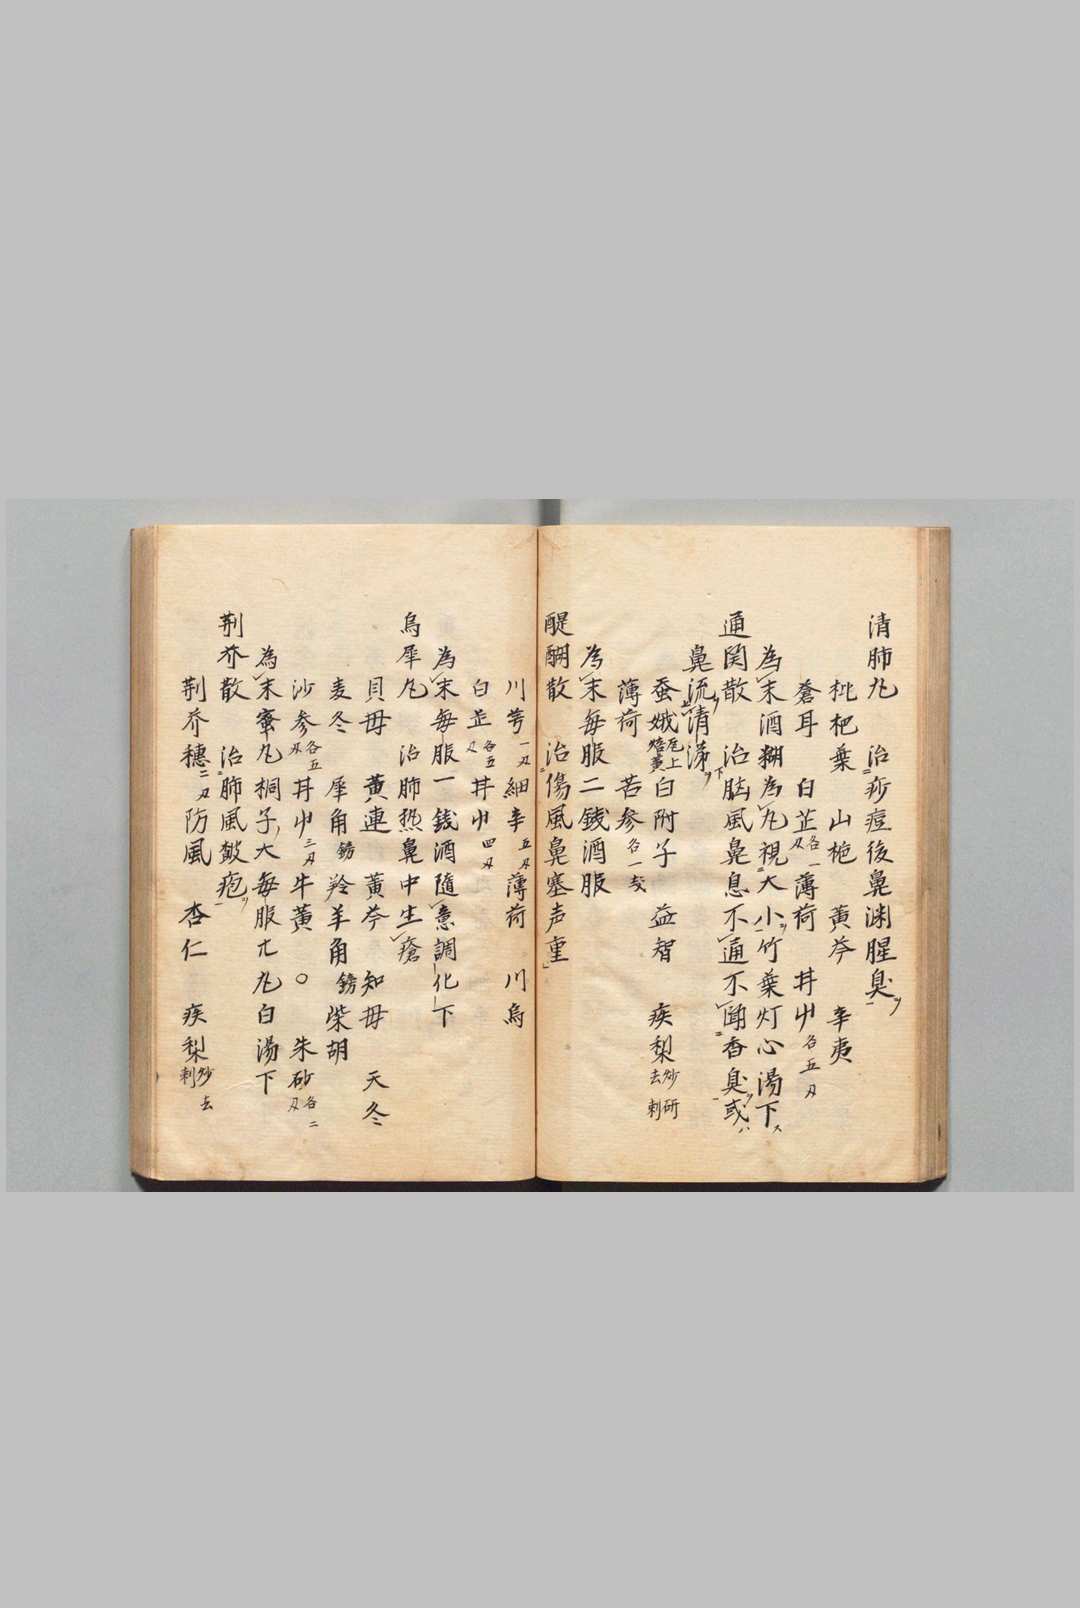 清肺丸　治疹痘後鼻渊腥臭
枇杷葉　山梔　黄芩　辛夷
蒼耳　白芷各一刄　薄荷　甘艸各五刄
為末酒糊為丸視大小竹葉灯心湯下
通関散　治脳風鼻息不通不聞香臭或
鼻流清涕
蚕娥瓦上焙黄　白附子　益智　疾梨炒研去刺
薄荷　苦参各一
為末毎服二銭酒服
醍醐散　治傷風鼻塞声重
川芎一刄　細辛五刄　薄荷　川烏
白芷各五刄　甘艸四刄
為末毎服一銭酒随意調化下
烏犀丸　治肺热鼻中生瘡
貝母　黄連　黄芩　知母　天冬
麦冬　犀角鎊　羚羊角鎊　柴胡
沙参各五刄　甘艸三刄　牛黄〇　朱砂各二刄
為末蜜丸桐子大毎服九丸白湯下
荆芥散　治肺風皷疱
荆芥穂二刄　防風　杏仁　疾梨炒去刺